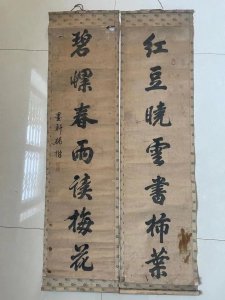 红豆晓雲書柿葉
碧螺春雨談梅花